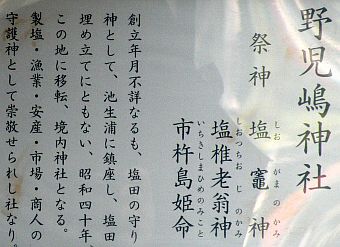 野児嶋神社
祭神 塩竈神
しお がまのかみ
塩椎老翁神
しおつちおじのかみ
市杵島姫命
いちきしまひめのみこと
創立年月不詳なるも、塩田の守り
神として、池生浦に鎮座し、塩田
埋め立てにともない、昭和四十年、
この地に移転、境内神社となる。
製塩・漁業・安産・市場・商人の
守護神として崇敬せられし社なり。